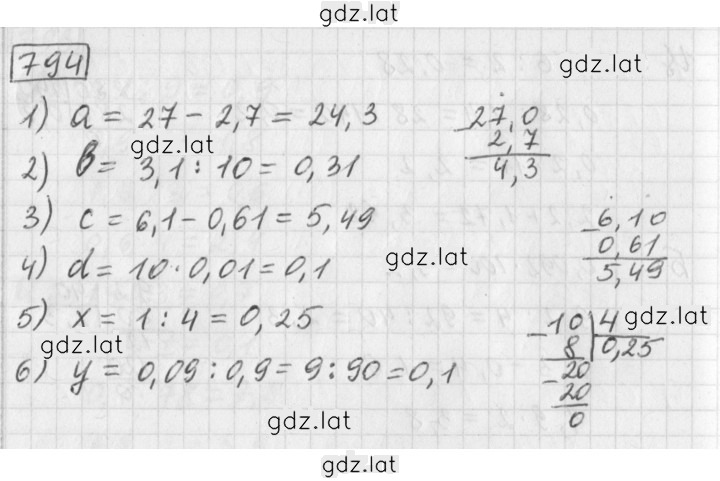 gdz.lat
794
gdz.lat
1) a = 27 - 2,7 = 24,3
27,0
- 2,7
4,3
gdz.lat
2) b = 3,1 : 10 = 0,31
3) c = 6,1 - 0,61 = 5,49
- 6,10
0,61
5,49
gdz.lat
4) d = 10 · 0,01 = 0,1
5) x = 1 : 4 = 0,25
- 10 | 4
8 | 0,25
- 20
20
0
gdz.lat
gdz.lat
6) y = 0,09 : 0,9 = 9 : 90 = 0,1
gdz.lat
gdz.lat